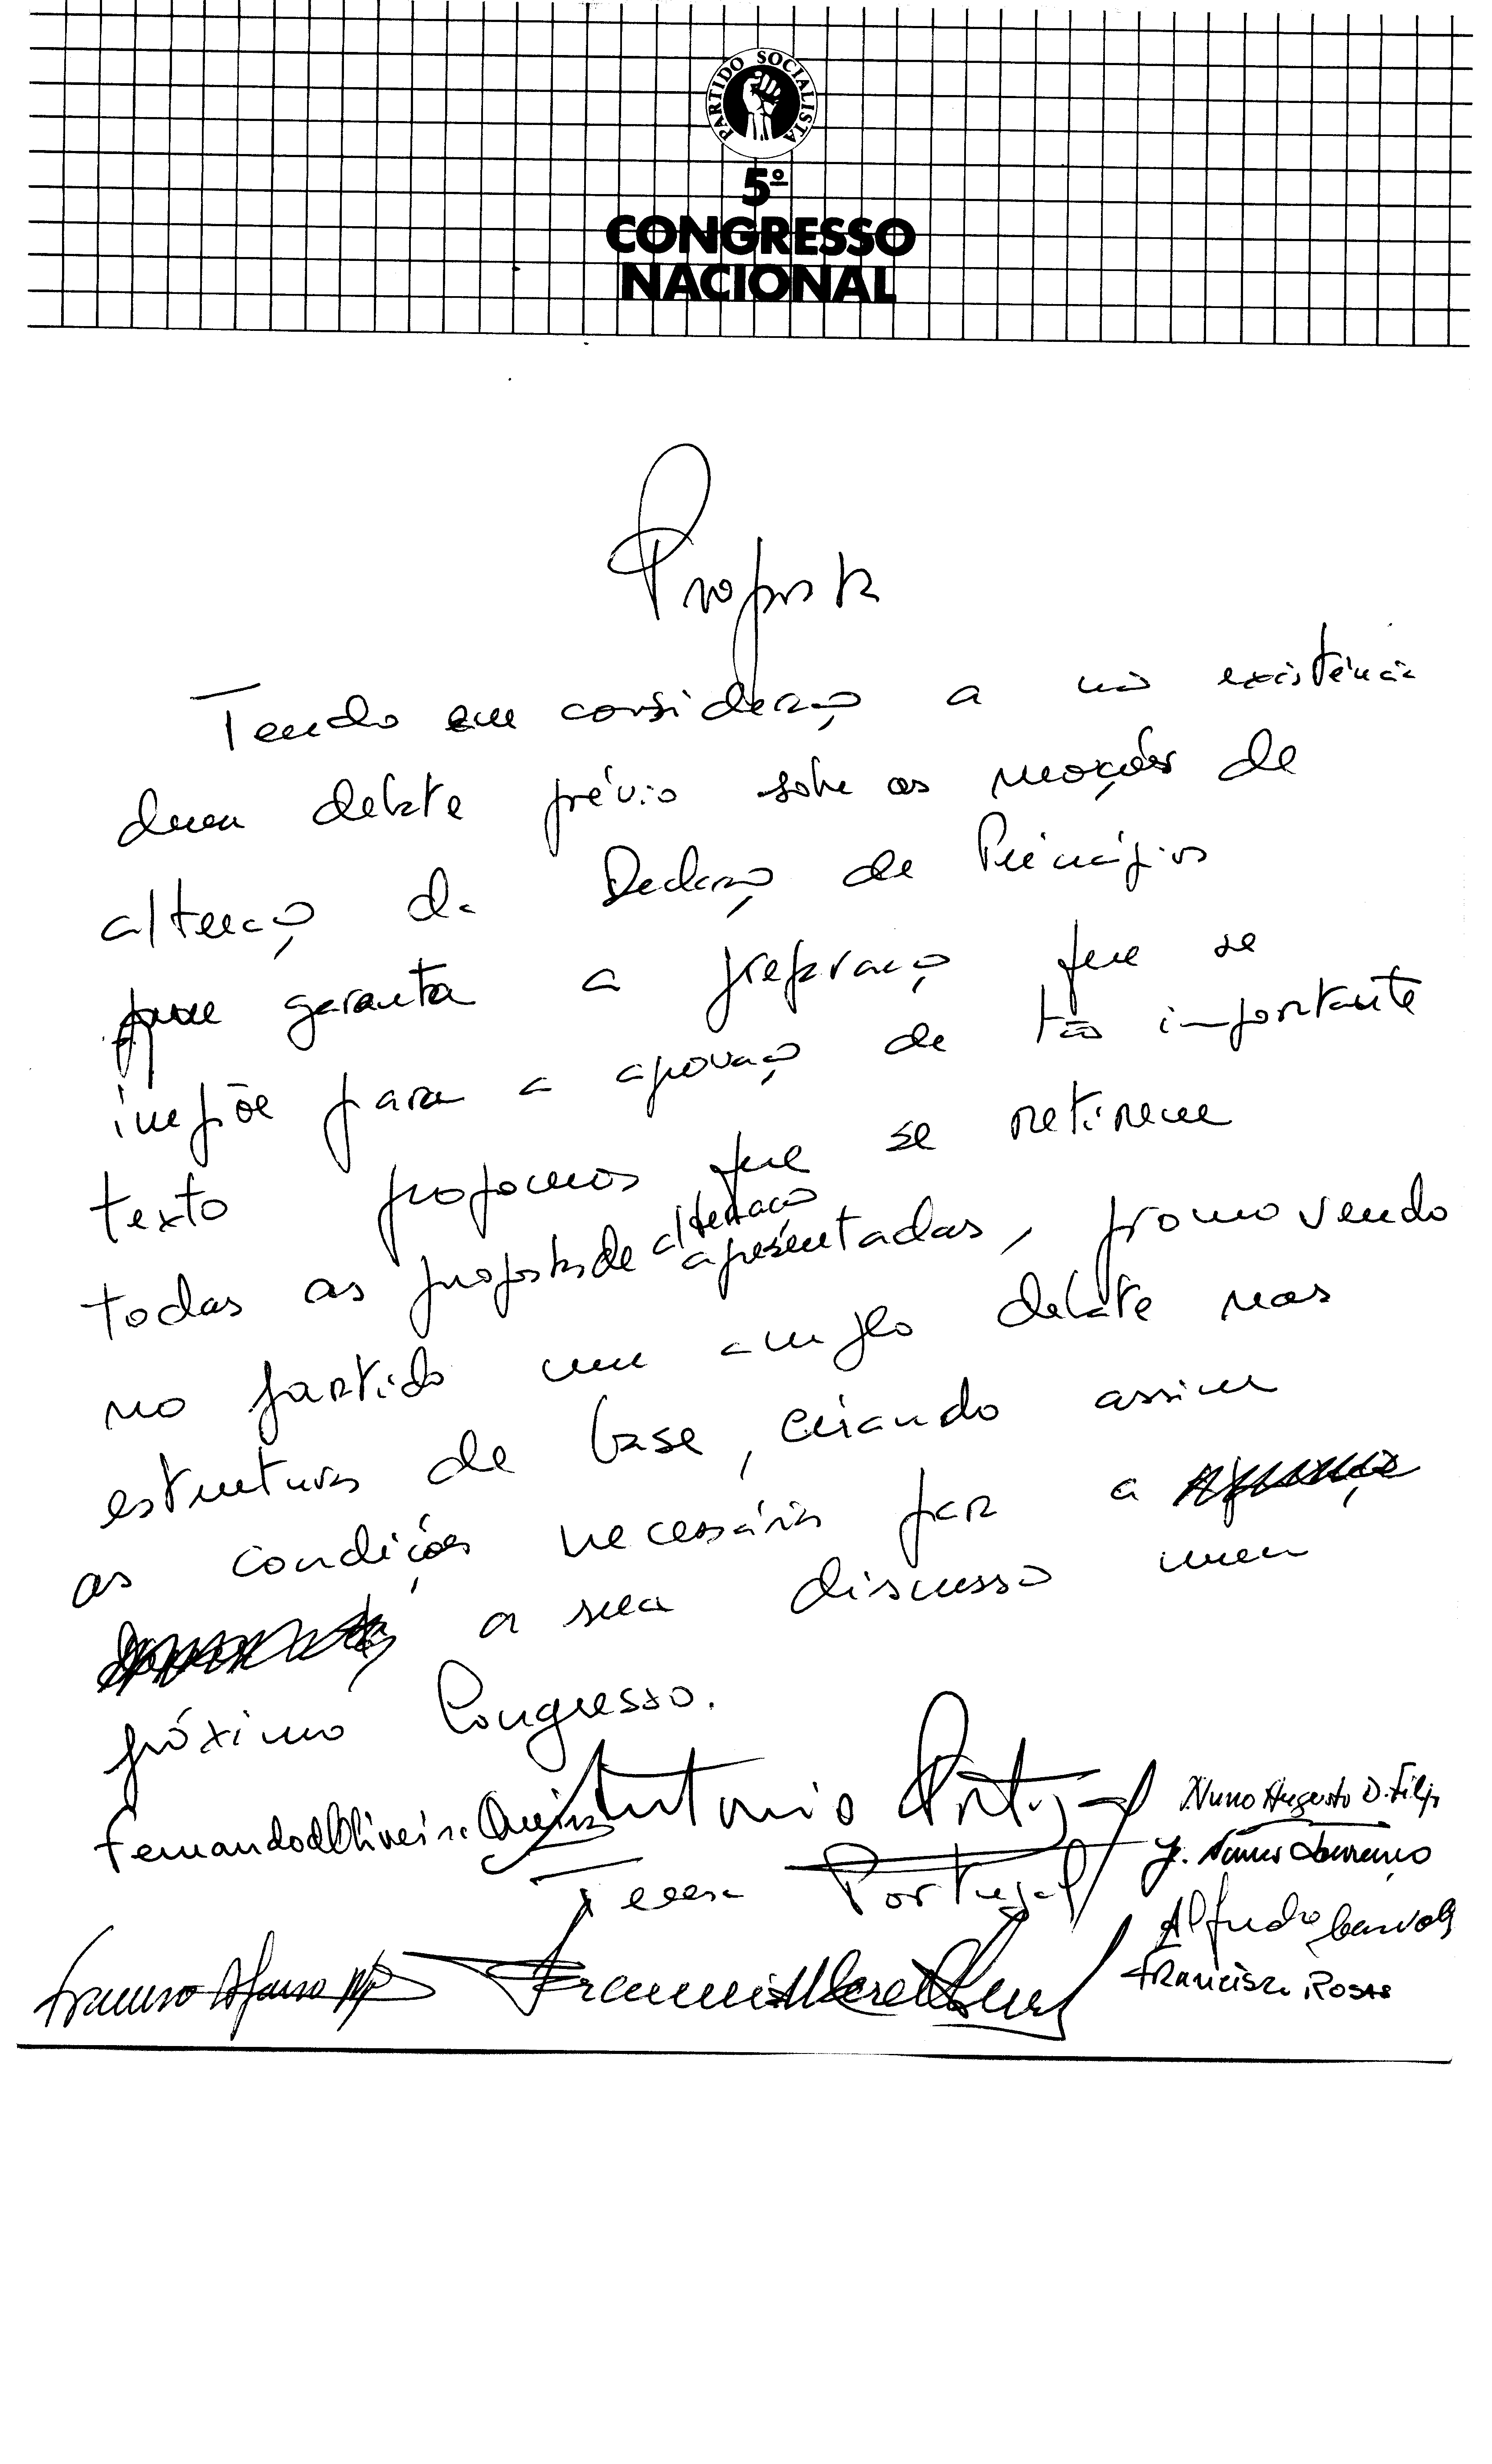 PARTIDO SOCIALISTA
5º
CONGRESSO
NACIONAL
Proposta
Tendo em consideração a não existência
dum debate prévio sobre as moções de
alteração da Declaração de Princípios
que garanta a preparação que se
impõe para a aprovação de tão importante
texto propomos que se retirem
todas as propostas de alteração apresentadas, promovendo
no partido um amplo debate nas
estruturas de base, criando assim
as condições necessárias para a
a sua discussão num
próximo Congresso.
António Portugal
Nuno Augusto D. Filipe
Fernando de Oliveira
J. Nunes Lourenço
Teresa Portugal
Alfredo
Francisco Rosas
Francisco Afonso